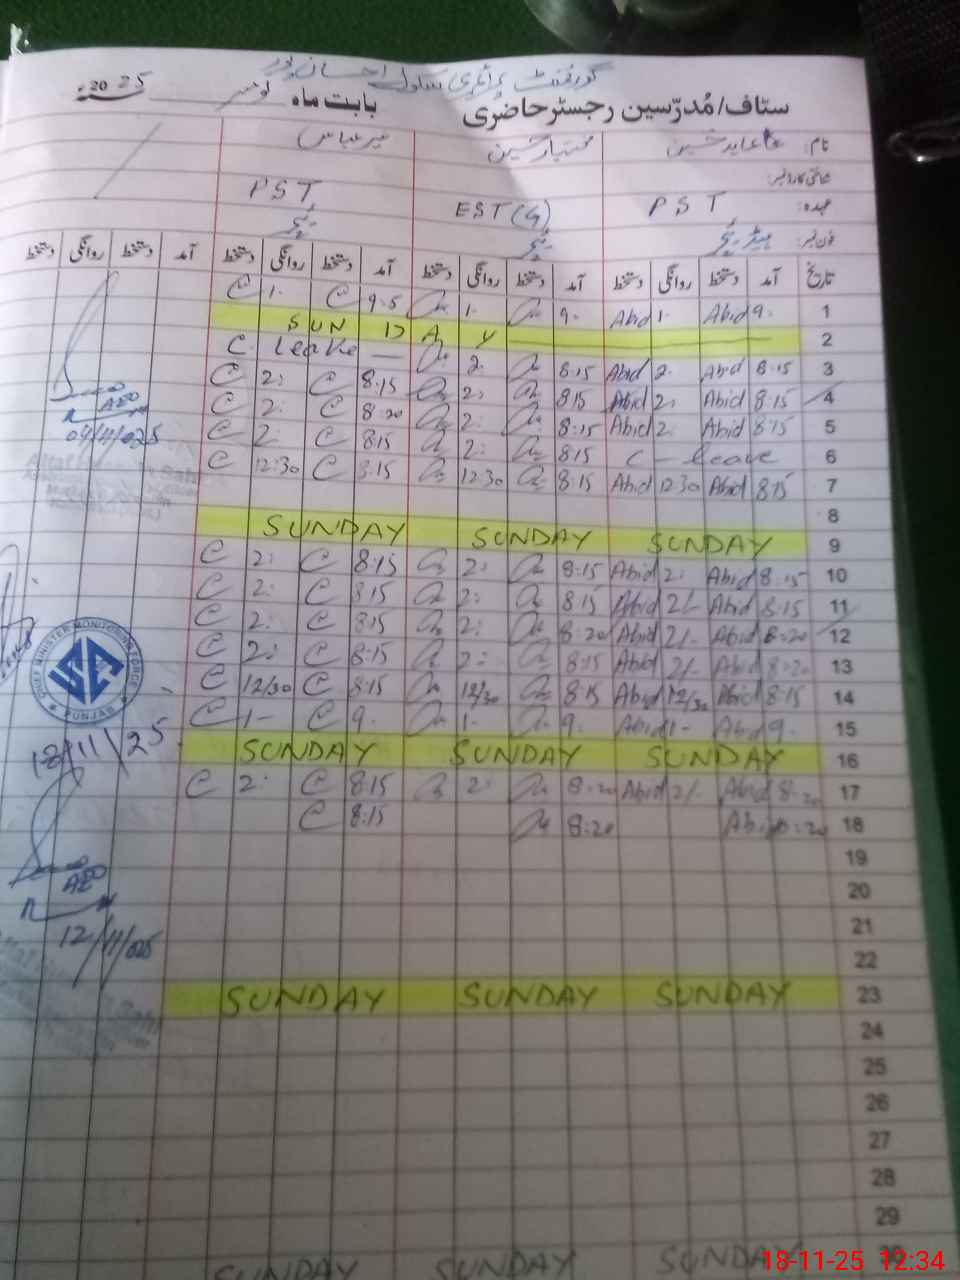 گورنمنٹ پرائمری سکول احسان پور
سٹاف/مُدرّسین رجسٹر حاضری بابت ماہ نومبر 2025ء
نام: عابد حسین مختیار حسین میر عباس
شناختی کارڈ نمبر:
عہدہ: PST EST(G) PST
فون نمبر: ہیڈ ٹیچر ٹیچر ٹیچر
تاریخ آمد دستخط روانگی دستخط آمد دستخط روانگی دستخط آمد دستخط روانگی دستخط آمد دستخط روانگی دستخط
C 1. C 9.5 1. 9. Abid 1. Abid 9. 1
SUNDAY 2
C. leake — 2. 8:15 Abid 2. Abid 8:15 3
C 2: C 8:15 2: 8:15 Abid 2: Abid 8:15 4
C 2: C 8:20 2: 8:15 Abid 2: Abid 8:15 5
C 2 C 8:15 2: 8:15 C — leave 6
C 12:30 C 8:15 12:30 8:15 Abid 12:30 Abid 8:15 7
8
SUNDAY SUNDAY SUNDAY 9
C 2: C 8:15 2: 8:15 Abid 2: Abid 8:15 10
C 2: C 8:15 2: 8:15 Abid 2/- Abid 8:15 11
C 2: C 8:15 2: 8:20 Abid 2/- Abid 8:20 12
C 2: C 8:15 2: 8:15 Abid 2/- Abid 8:20 13
C 12/30 C 8:15 12/30 8:15 Abid 12/30 Abid 8:15 14
C 1- C 9. 1- 9. Abid 1- Abid 9. 15
SUNDAY SUNDAY SUNDAY 16
C 2: C 8:15 2: 8:20 Abid 2/- Abid 8:20 17
C 8:15 8:20 Abid 8:20 18
19
20
21
22
SUNDAY SUNDAY SUNDAY 23
24
25
26
27
28
29
SUNDAY SUNDAY SUNDAY 30
AEO
04/11/025
CHIEF MINISTER MONITORING FORCE
PUNJAB
18/11/25
AEO
12/11/025
18-11-25 12:34